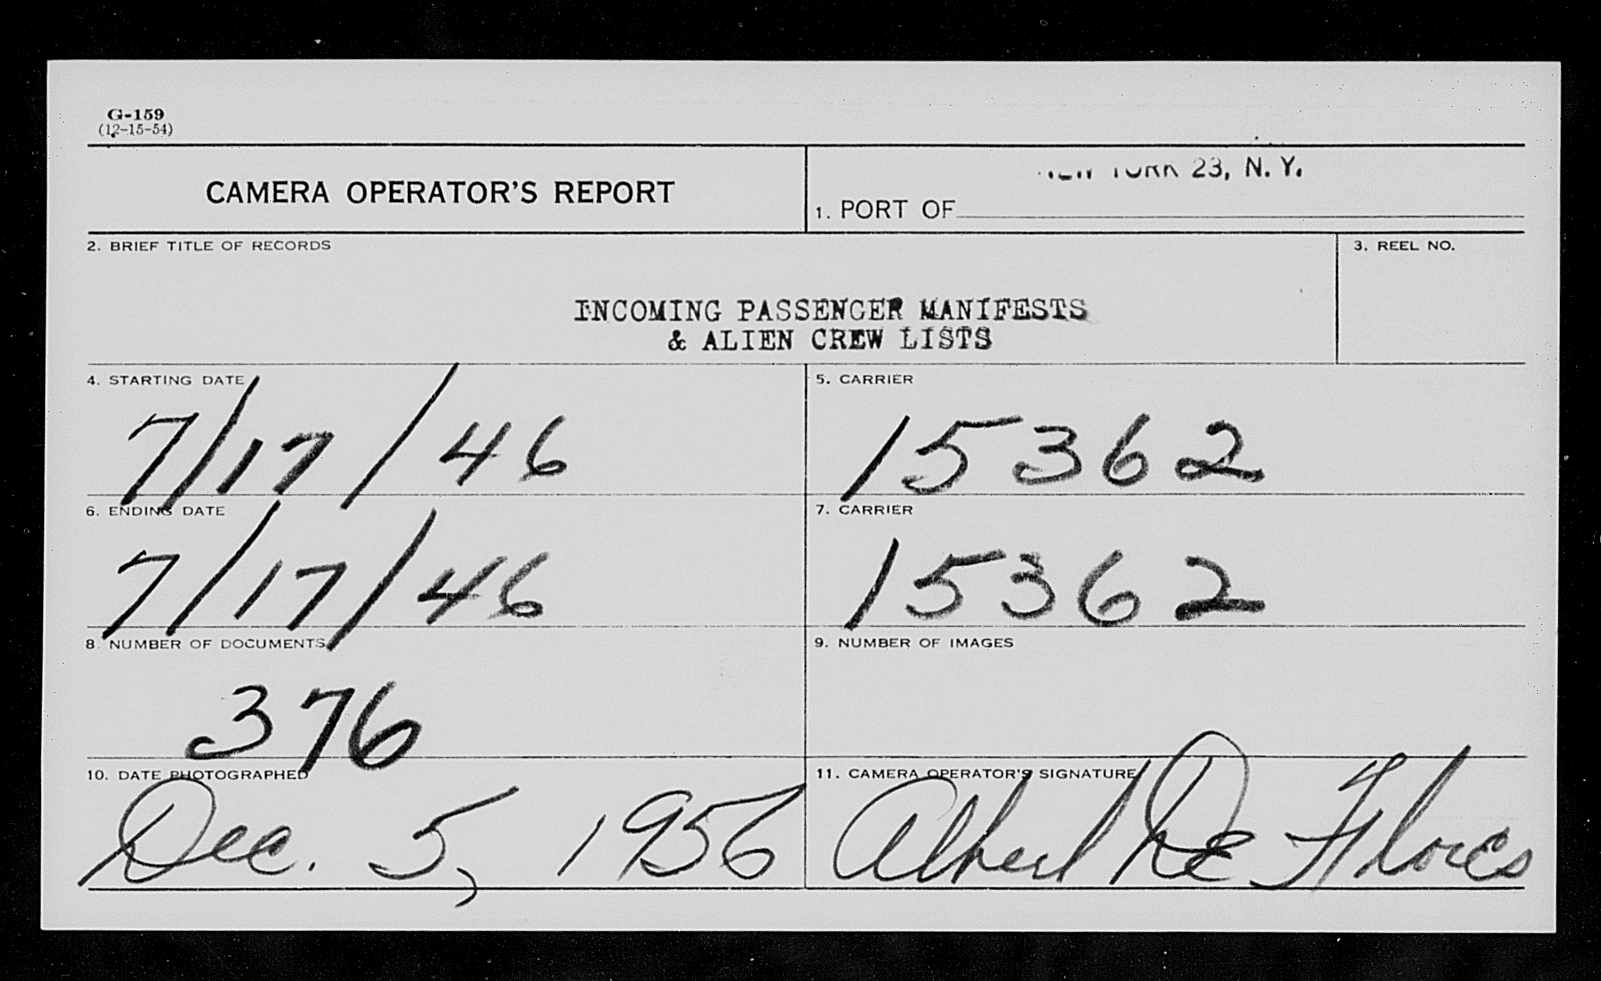 G-159
(12-15-54)
CAMERA OPERATOR'S REPORT
NEW YORK 23, N. Y.
1. PORT OF
2. BRIEF TITLE OF RECORDS
3. REEL NO.
INCOMING PASSENGER MANIFESTS
& ALIEN CREW LISTS
4. STARTING DATE
7/17/46
5. CARRIER
15362
6. ENDING DATE
7/17/46
7. CARRIER
15362
8. NUMBER OF DOCUMENTS
376
9. NUMBER OF IMAGES
10. DATE PHOTOGRAPHED
Dec. 5, 1956
11. CAMERA OPERATOR'S SIGNATURE
Albert De Flores